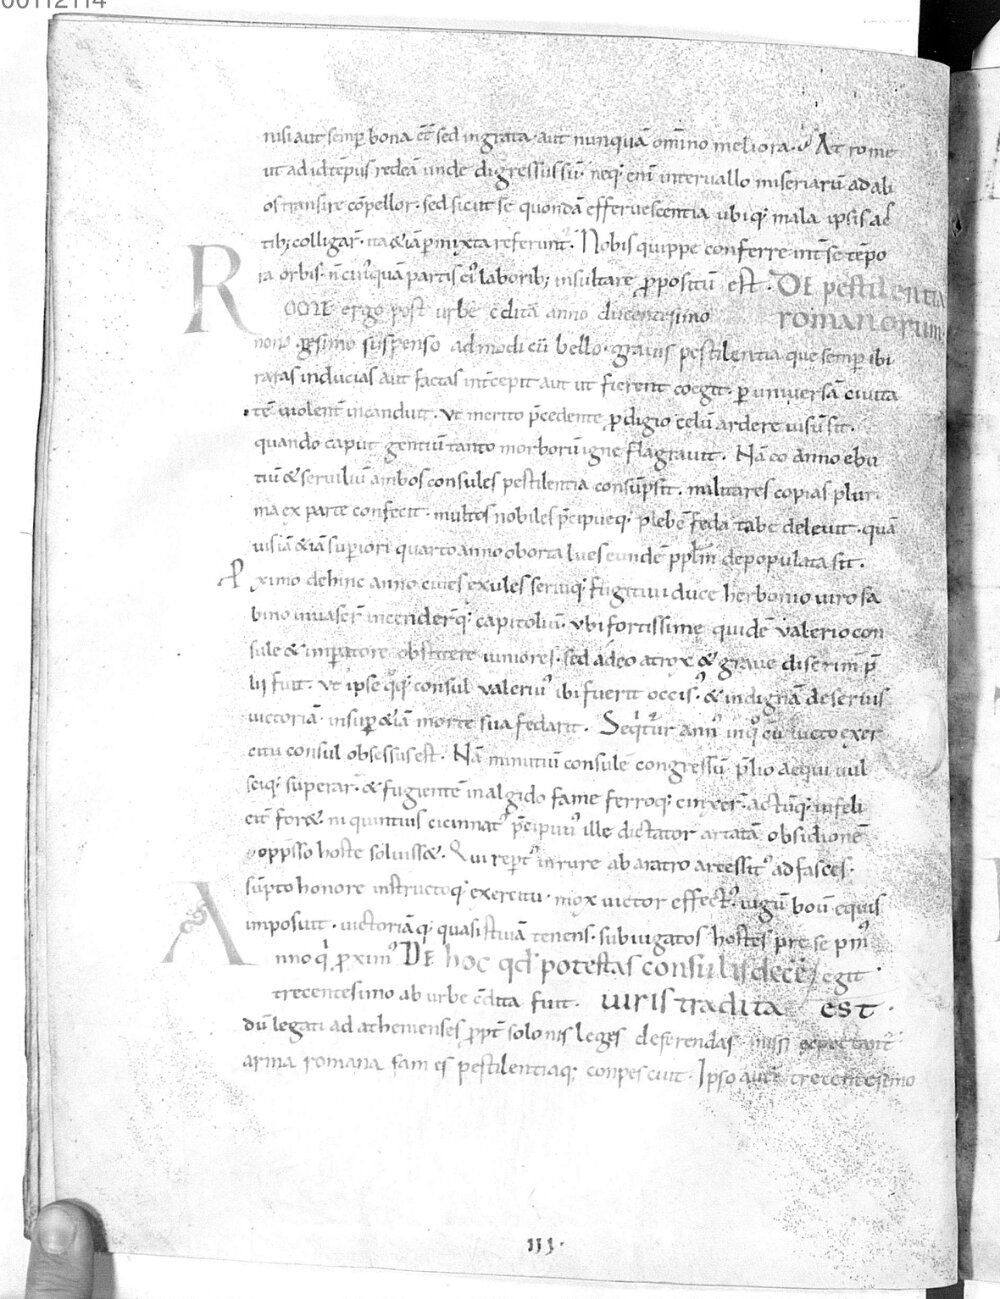 00112114
nisi aut semp̄ bona ēt sed ingrata aut nunquā om̄ino meliora. At rome
ut ad id tēpus redeā unde digressus sū. neq; enī intervallo miseriarū ad ali
os transire cōpellor. sed sicut se quondā effervescentia ubiq; mala ipsis ac
tib; colligar̄. ita &iā pmixta referunt̉. Nobis quippe conferre int̄ se tēpo
ra orbis. n̄ cui'quā partis ei' laborib; insultare ppositū est. DE pestilentia
ROME ergo post urbē c̄ditā anno ducentesimo romanorum
nono gesimo suspenso ad modicū bello. gravis pestilentia que semp̄ ibi
raras inducias aut factas int̄cepit aut ut fierent coegit. p universā civita
tē violent̄ incanduit. Ut merito p̄cedente pdigio celū ardere visū sit.
quando caput gentiū tanto morborū igne flagravit. Nā eo anno ebu
tiū & serviliū ambos consules pestilentia consūpsit. militares copias plur
ma ex parte confecit. multos nobiles p̄cipueq; plebē feda tabe delevit. quā
vis iā &iā supiori quarto anno oborta lues eundē pplm̄ depopulata sit.
Pximo dehinc anno cives exules serviq; fugitivi duce herbonio viro sa
bino invaser̄ incender̄q; capitoliū. Ubi fortissime quidē valerio con
sule & impatore obstitere iuniores. sed adeo atrox & grave discrimī p̄
lii fuit. Ut ipse q̊q; consul valeri' ibi fuerit occis' & indignā de servis
victoriā. insup &iā morte sua fedarit. Seqt̄ur ann' inq cū victo exer
citu consul obsessus est. Nā minutiū consulē congressū p̄lio aequi vul
sciq; superar̄. & fugientē in algido fame ferroq; cinxer̄. actūq; infeli
cit̄ for& ni quintius cicinnat' p̄cipuu' ille dictator artatā obsidionē
oppsso hoste solviss&. Qui rept̄' in rure ab aratro arcessit' ad fasces.
sūpto honore instructoq; exercitu. mox victor effect' iugū boū equis
imposuit. victoriāq; quasi stivā tenens. subiugatos hostes pre se pm'
Anno q pxim' DE hoc qd̄ potestas consulis decē egit
trecentesimo ab urbe c̄dita fuit. viris tradita est.
dū legati ad athenienses ppt̄ solonis leges deferendas missi expectant̉
arma romana fam es pestilentiaq; conpescuit. Ipso autē trecentesimo
III.